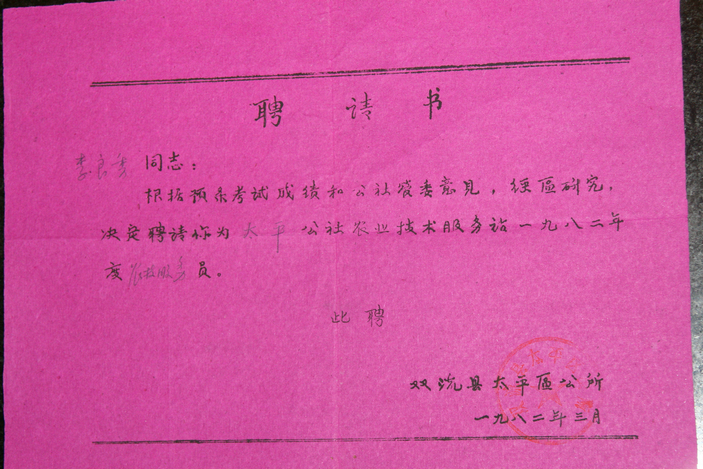 聘请书
李良秀 同志：
根据预示考试成绩和公社管委意见，经区研究，
决定聘请你为 太平 公社农业技术服务站一九八二年
度农技服务员。
此聘
双流县太平区公所
一九八二年三月